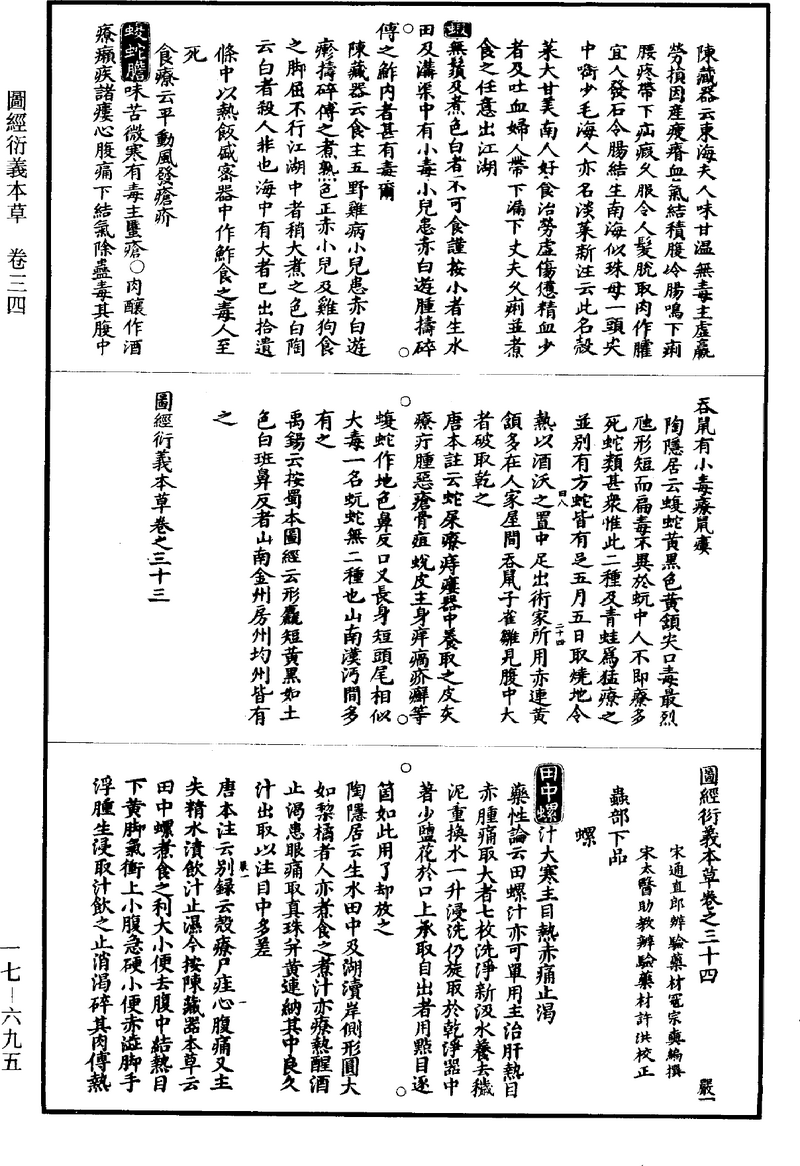 圖經衍義本草　卷三四
一七—六九五
陳藏器云東海夫人味甘溫無毒主虛羸
勞損因産瘦瘠血氣結積腹冷腸鳴下痢
腰疼帶下疝瘕久服令人髮脫取肉作臛
宜人發石令腸結生南海似珠母一頭尖
中銜少毛海人亦名淡菜新注云此名殼
菜大甘美南人好食治勞虛傷憊精血少
者及吐血婦人帶下漏下丈夫久痢並煮
食之任意出江湖
蝦無鬚及煮色白者不可食謹按小者生水
田及溝渠中有小毒小兒患赤白遊腫擣碎
傅之鮓内者甚有毒爾
陳藏器云食主五野雞病小兒患赤白遊
瘮擣碎傅之煮熟色正赤小兒及雞狗食
之脚屈不行江湖中者稍大煮之色白陶
云白者殺人非也海中有大者已出拾遺
條中以熱飯盛密器中作鮓食之毒人至
死
食療云平動風發瘡疥
蚺蛇膽味苦微寒有毒主䘌瘡○肉釀作酒
療癩疾諸瘻心腹痛下結氣除蠱毒其腹中
吞鼠有小毒療鼠瘻
陶隱居云蝮蛇黃黑色黃頷尖口毒最烈
虺形短而扁毒不異於蚖中人不即療多
死蛇類甚衆惟此二種及青蛙爲猛療之
並別有方蛇皆有足五月五日取燒地令
熱以酒沃之置中足出術家所用赤連黃
頷多在人家屋間吞鼠子雀雛見腹中大
者破取乾之
唐本註云蛇屎療痔瘻器中養取之皮灰
療疔腫惡瘡骨疽蛻皮主身痒瘑疥癬等
蝮蛇作地色鼻反口又長身短頭尾相似
大毒一名蚖蛇無二種也山南漢沔間多
有之
禹錫云按蜀本圖經云形麤短黃黑如土
色白斑鼻反者山南金州房州均州皆有
之
圖經衍義本草卷之三十三
圖經衍義本草卷之三十四　嚴一
宋通直郎辨驗藥材寇宗奭編撰
宋太醫助教辨驗藥材許洪校正
蟲部下品
螺
田中螺汁大寒主目熱赤痛止渴
藥性論云田螺汁亦可單用主治肝熱目
赤腫痛取大者七枚洗淨新汲水養去穢
泥重換水一升浸洗仍旋取於乾淨器中
著少鹽花於口上承取自出者用點目逐
箇如此用了却放之
陶隱居云生水田中及湖瀆岸側形圓大
如梨橘者人亦煮食之煮汁亦療熱醒酒
止渴患眼痛取真珠并黃連納其中良久
汁出取以注目中多差
唐本注云別録云殼療尸疰心腹痛又主
失精水漬飲汁止瀉今按陳藏器本草云
田中螺煮食之利大小便去腹中結熱目
下黃脚氣衝上小腹急硬小便赤澁脚手
浮腫生浸取汁飲之止消渴碎其肉傅熱